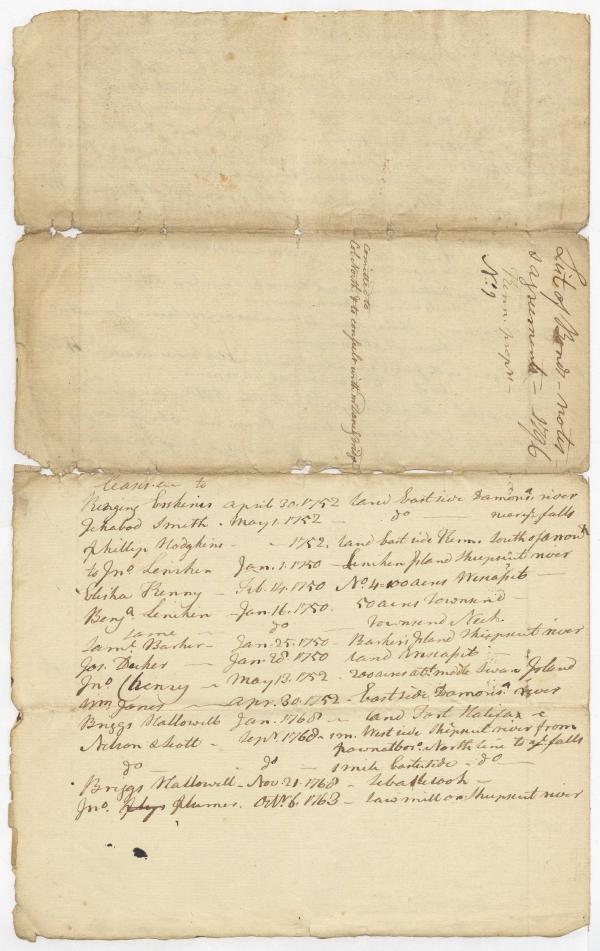 List of Bonds - Notes
& agreements - 1796
Kenn. propr -
No. 9
Comitted to
Col North & to consult with mr Danl
Leases to
Erskines april 30. 1752 land East side Damorisa. river
Ichabod Smith - May 1. 1752 - do - near ye falls
Phillip Hodgkins - - 1752. land East side Kenn. South of
to Jno Leniken Jan. 1. 1750 - Leniken Island Sheepscut river
Elisha Kenny - Feb. 14. 1750 No 4 = 100 acres Wiscasset -
Benja Leniken - Jan. 16. 1750. 50 acres Townsend -
same - do Townsend Neck
Saml Barker - Jan. 25. 1750 - Barkers Island Sheepscut river
Jos. Decker - Jan. 28. 1750 land Wiscasset -
Jno Chenery - May 13. 1752 - 200 acres at middle Swan Island
Wm Jones - apr. 30. 1752 - East side Damorisa. river
Briggs Hallowell Jan. 1768 - land Fort Halifax
Nelson & Scott - Sept. 1768 - 1 m. West side Shepscut river from
pownalboro. North line to ye falls
do - do - 1 mile East side - do -
Briggs Hallowell - Nov. 21. 1768 -
Jno. plumer. Oct. 6. 1763 - saw mill on Sheepscut river